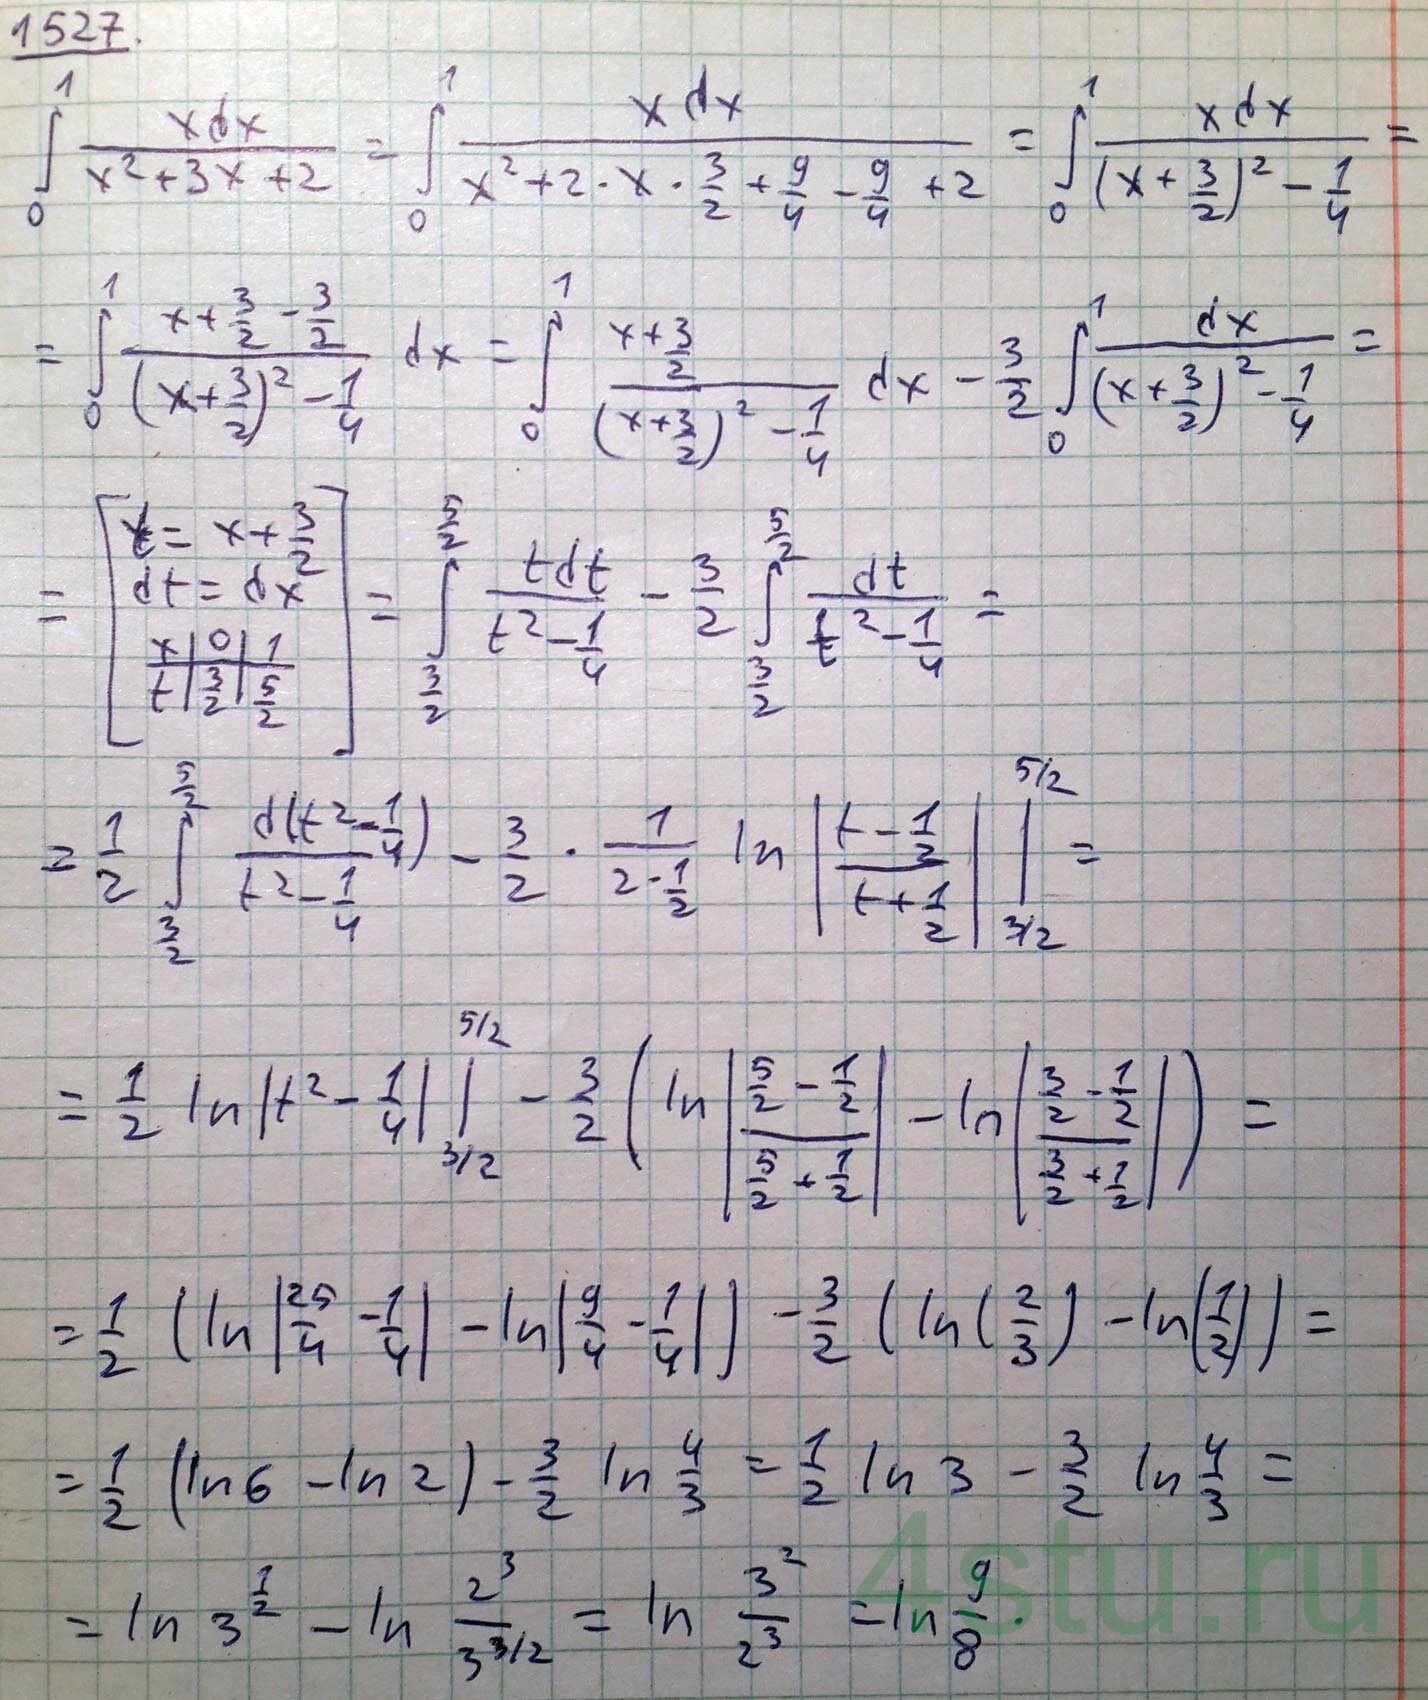 1527.
∫₀¹ xdx/(x²+3x+2) = ∫₀¹ xdx/(x²+2·x·3/2+9/4-9/4+2) = ∫₀¹ xdx/((x+3/2)²-1/4) =
= ∫₀¹ (x+3/2-3/2)/((x+3/2)²-1/4) dx = ∫₀¹ (x+3/2)/((x+3/2)²-1/4) dx - 3/2 ∫₀¹ dx/((x+3/2)²-1/4) =
= [t = x+3/2
dt = dx
x | 0 | 1
t | 3/2 | 5/2] = ∫_{3/2}^{5/2} tdt/(t²-1/4) - 3/2 ∫_{3/2}^{5/2} dt/(t²-1/4) =
= 1/2 ∫_{3/2}^{5/2} d(t²-1/4)/(t²-1/4) - 3/2 · 1/(2·1/2) ln |(t-1/2)/(t+1/2)| |_{3/2}^{5/2} =
= 1/2 ln|t²-1/4| |_{3/2}^{5/2} - 3/2 (ln|(5/2-1/2)/(5/2+1/2)| - ln|(3/2-1/2)/(3/2+1/2)|) =
= 1/2 (ln|25/4-1/4| - ln|9/4-1/4|) - 3/2 (ln(2/3) - ln(1/2)) =
= 1/2 (ln6 - ln2) - 3/2 ln 4/3 = 1/2 ln3 - 3/2 ln 4/3 =
= ln 3^{1/2} - ln 2³/3^{3/2} = ln 3²/2³ = ln 9/8.
4stu.ru